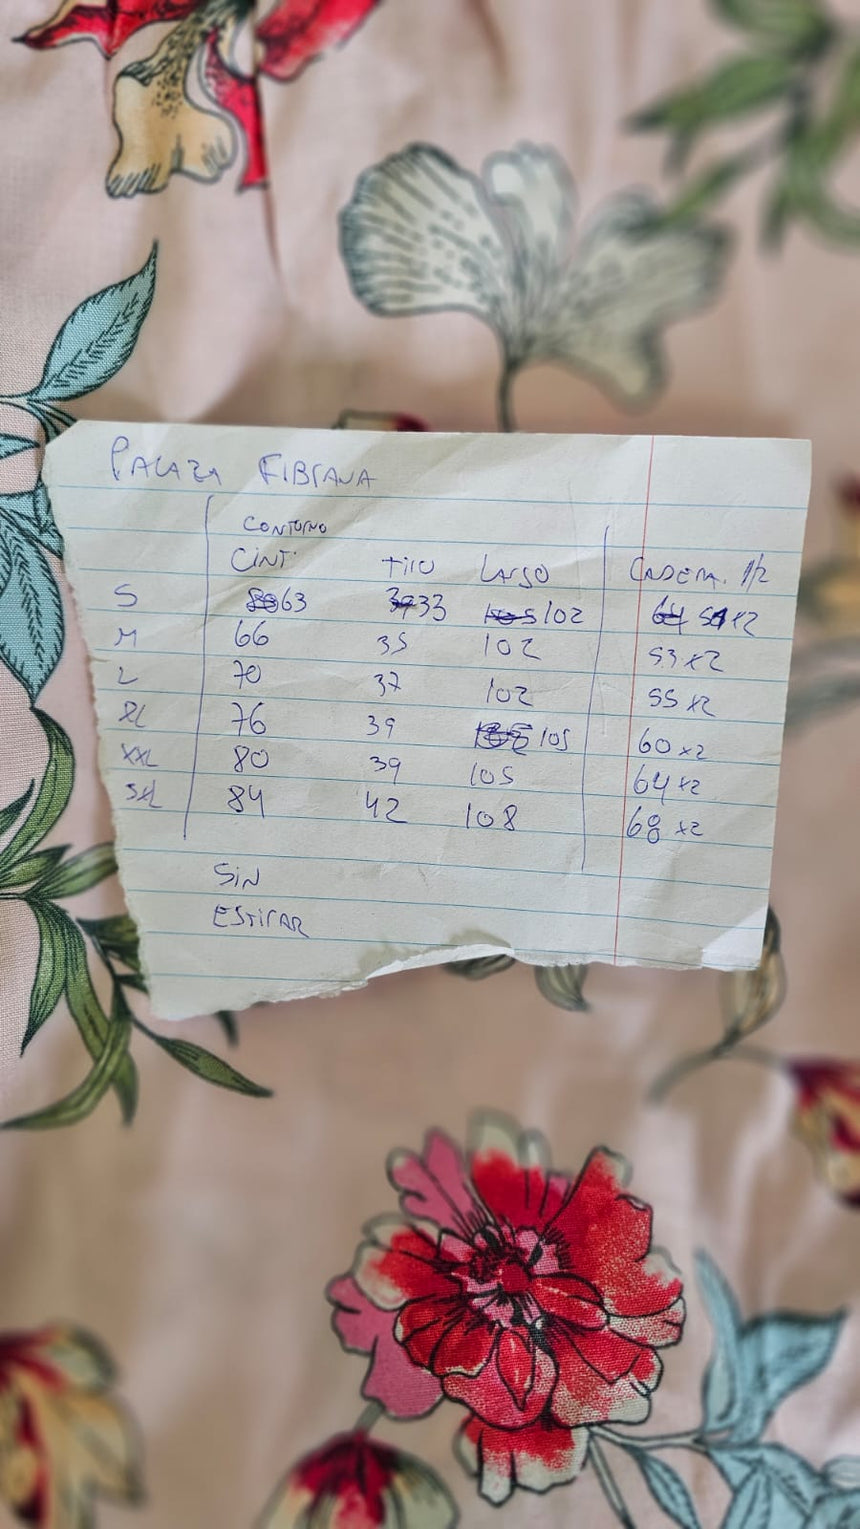 PALAZA FIBRANA
CONTORNO
CINT. TIRO LARGO CADERA. 1/2
S 63 33 102 51x2
M 66 35 102 53x2
L 70 37 102 55x2
XL 76 39 105 60x2
XXL 80 39 105 64x2
3XL 84 42 108 68x2
SIN
ESTIRAR